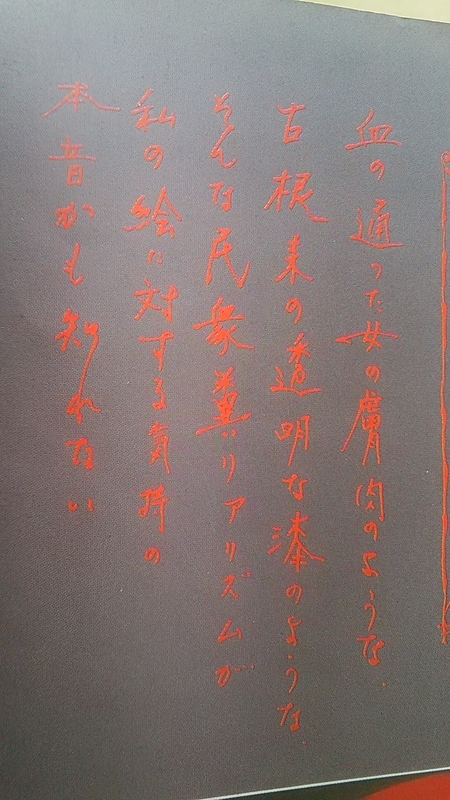 血の通った女の膚肉のような、
古根来の透明な漆のような、
そんな民衆糞リアリズムが
私の絵に対する気持の
本音かも知れない